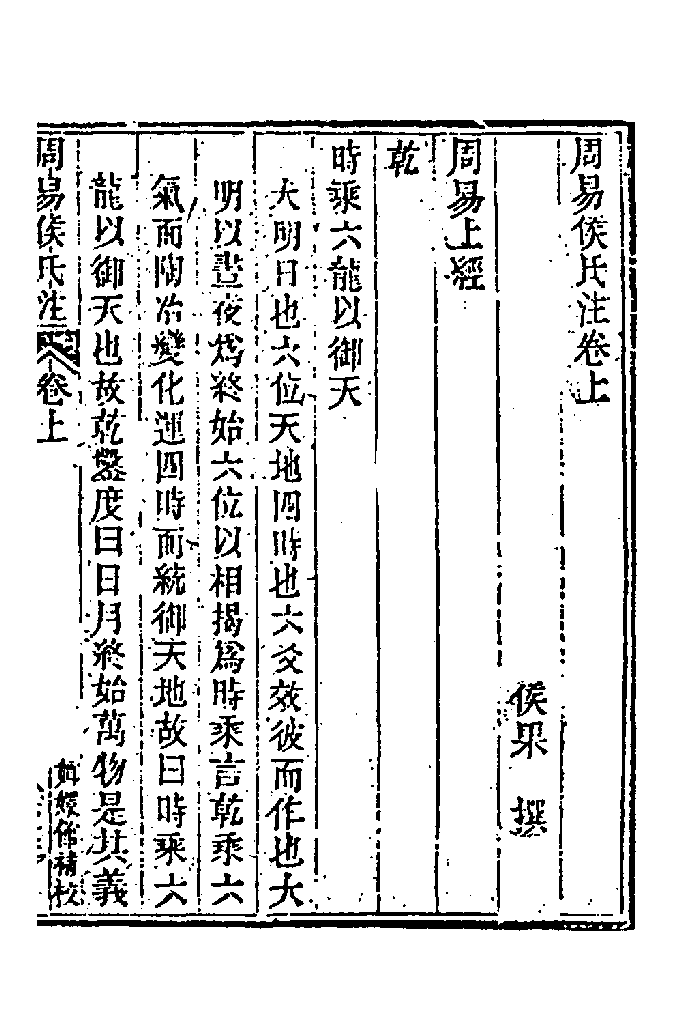 周易侯氏注卷上
侯果 撰
周易上經
乾
時乘六龍以御天
大明日也六位天地四時也六爻效彼而作也大
明以晝夜爲終始六位以相揭爲時乘言乾乘六
氣而陶冶變化運四時而統御天地故曰時乘六
龍以御天也故乾鑿度曰日月終始萬物是其義
周易侯氏注 卷上
嫏嬛館補校